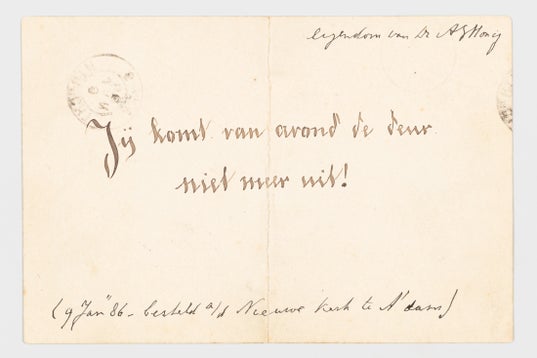 eigendom van Dr A G Honig
Jij komt van avond de deur
niet meer uit!
(9 Jan 86 - besteld a/d Nieuwe Kerk te A'dam)